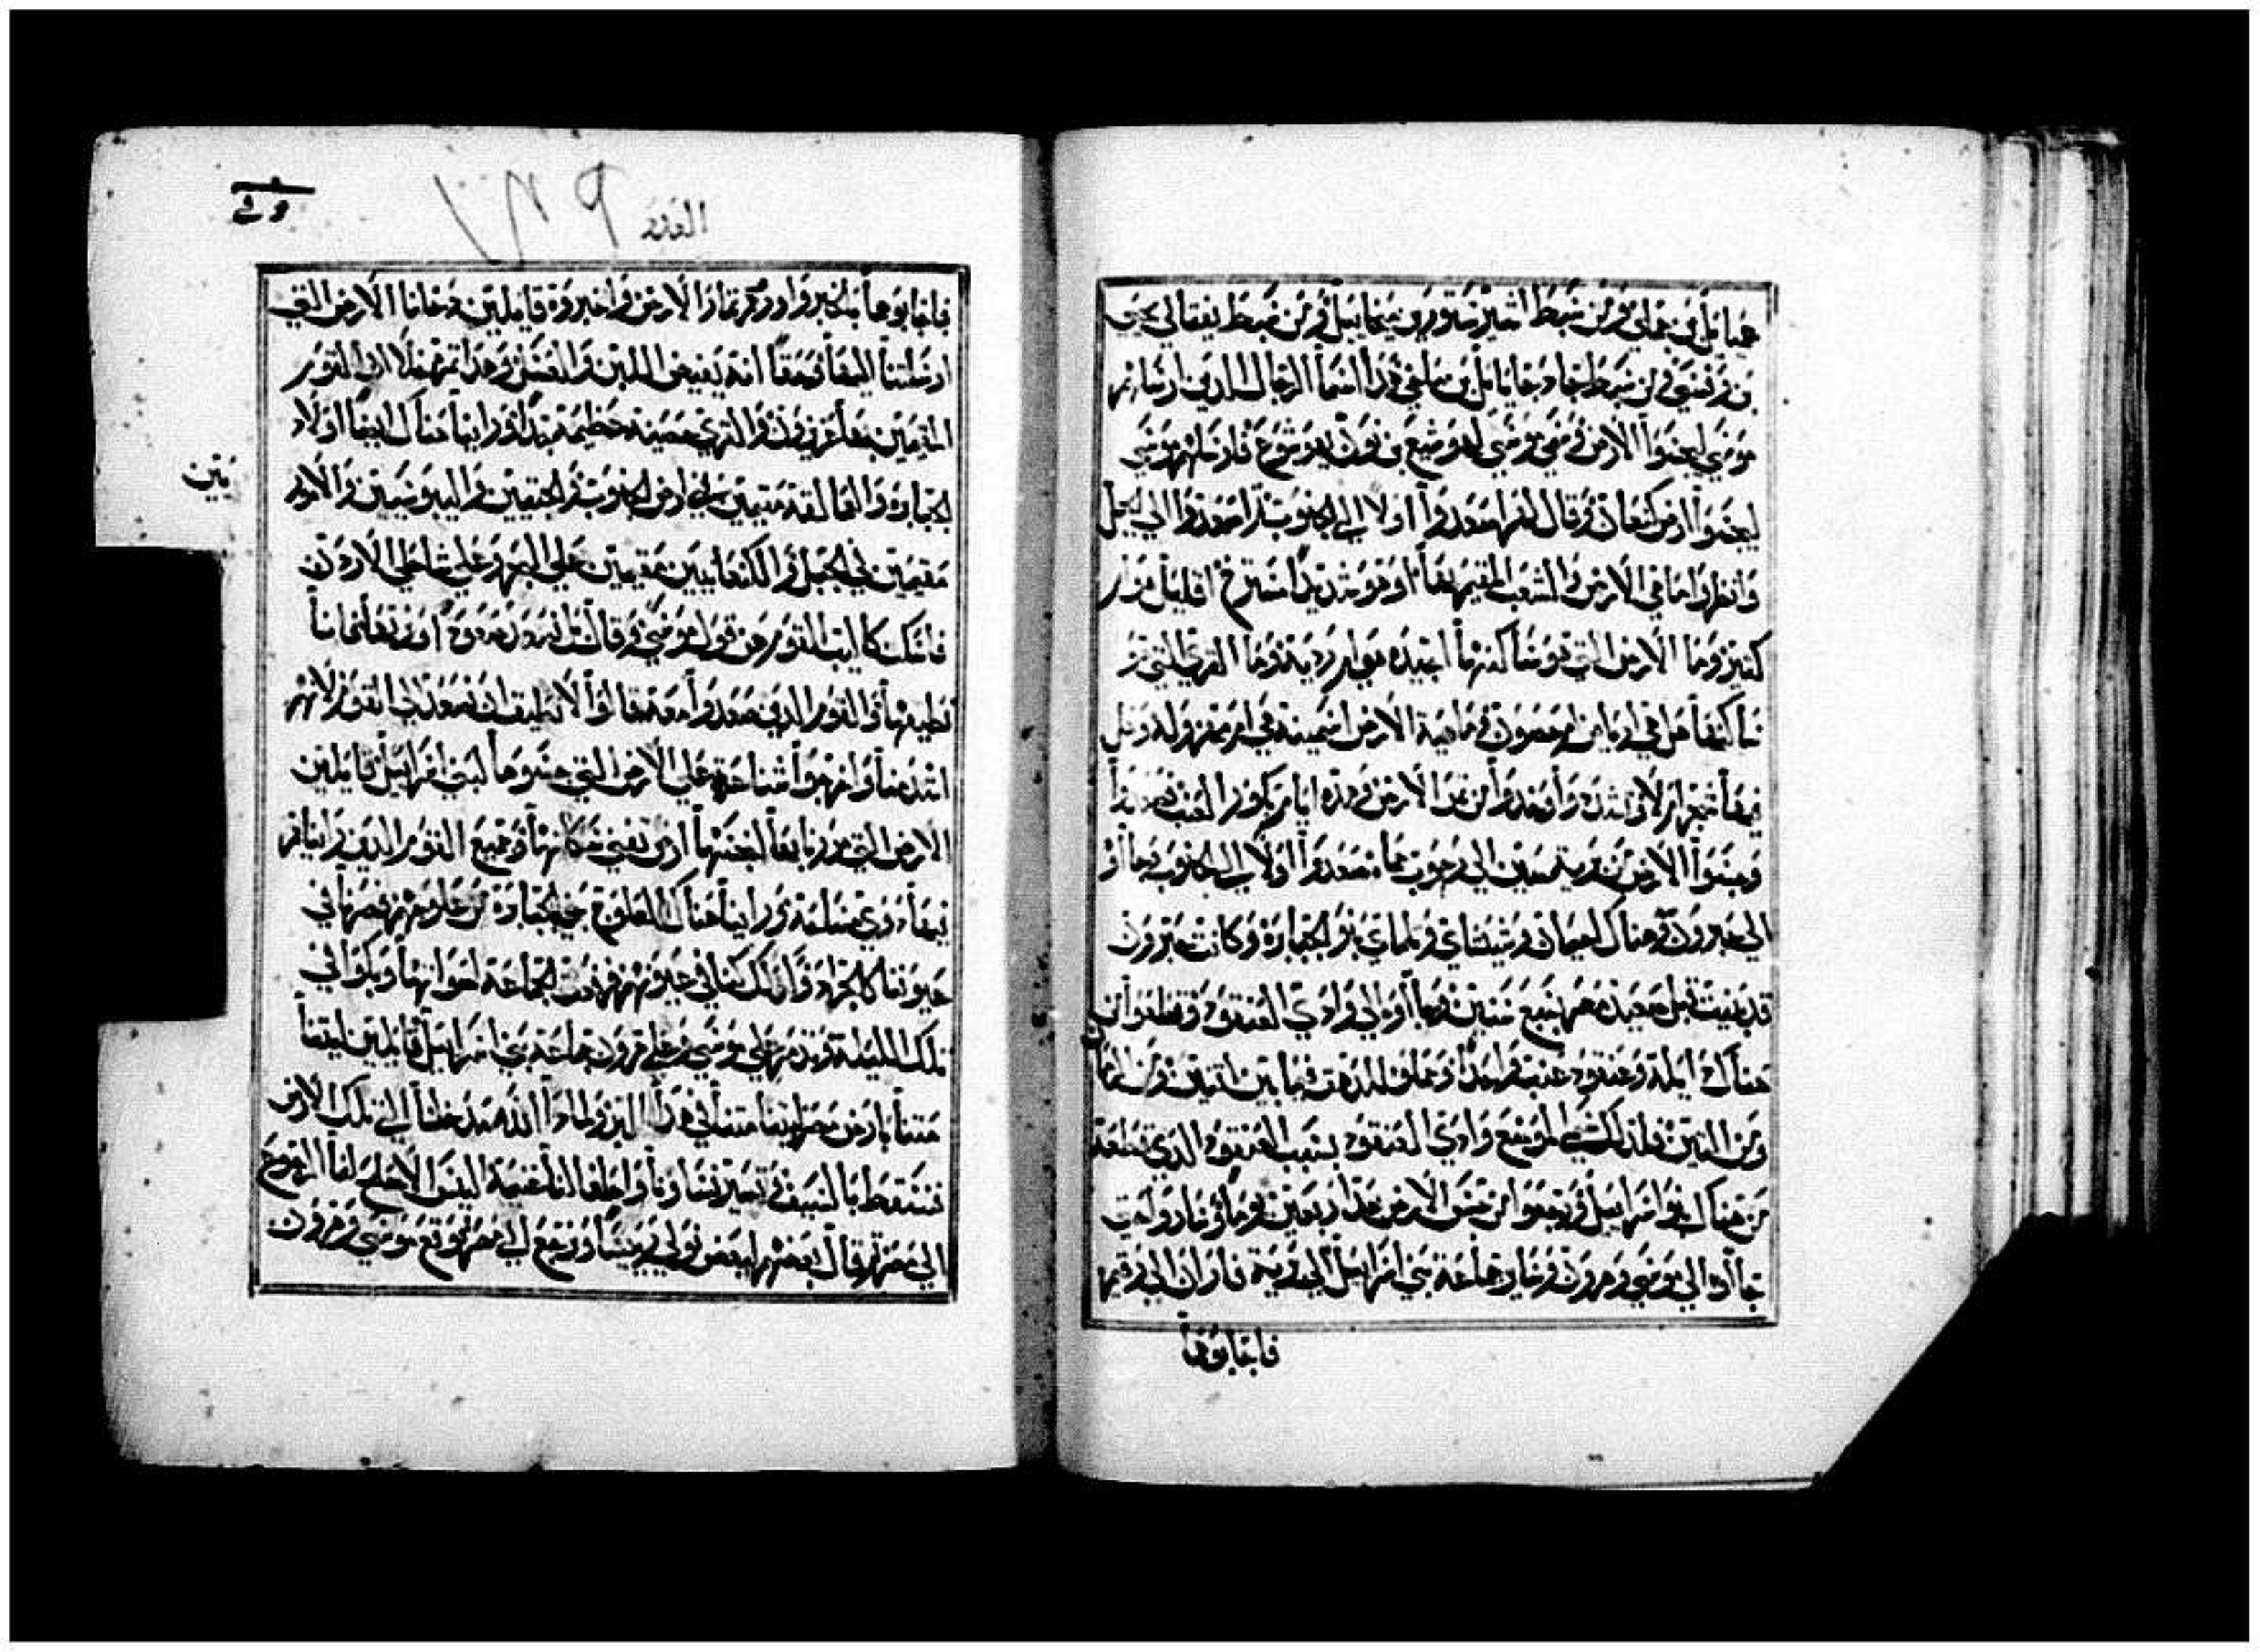 عمائيل بن جملي ومن سبط اشير ساتور بن ميخاييل ومن سبط نفتالي
بن وفسي ومن سبط جاد جايايل بن ماخي هذه اسما الرجال الذين ارسلهم
موسي ليجسوا الارض وسمي موسي لهوشع بن نون يهوشوع فارسلهم موسي
ليجسوا ارض كنعان وقال لهم اصعدوا اولا الي الجنوب ثم اصعدوا الي الجبل
وانظروا ما في الارض والشعب المقيم بها اقوي شديد ام مسترخ اقليل
كثير وما الارض التي هو ساكنها اجيده هي ام رديه وما القري التي هو
ساكنها هل في ارباض ام حصون وما هية الارض اسمينه هي ام مهزوله وهل
فيها شجر ام لا وتشددوا وخذوا من ثمر الارض وهذه ايام بكور العنب فصعدوا
وجسوا الارض من برية صين الي رحوب حماه فصعدوا اولا الي الجنوب وجاوا
الي حبرون وهناك احيمان وشيشاي وتلماي بنو الجبابرة وكانت حبرون
قد بنيت قبل صعيده مصر بسبع سنين وجاوا الي وادي العنقود وقطعوا من
هناك زرجونه وعنقود عنب واحدا وحملوه فيما بين اثنين ومن الرمان
ومن التين فلذلك سمي الموضع وادي العنقود بسبب العنقود الذي قطعه
من هناك بنو اسراييل ورجعوا من جس الارض بعد اربعين يوما وساروا حتي
جاوا الي موسي وهرون وساير جماعة بني اسراييل الي برية فاران الي رقيم
فاجابوهما
العدد
فاجابوهما بالخبر واوروهم ثمار الارض واخبروه قايلين دخلنا الارض التي
ارسلتنا اليها وحقا انها تفيض اللبن والعسل وهذا ثمرها الا ان القوم
المقيمين بها عزيزون والقري حصينه عظيمه جدا وراينا هناك ايضا اولاد
الجبابره والعمالقه مقيمين في ارض الجنوب والحيثيين واليبوسيين والامور
يين
مقيمين في الجبل والكنعانيين مقيمين علي البحر وعلي شاطي الاردن
فاسكت كالب القوم عن قول موسي وقال بل نصعد صعودا ونرثها فاننا
نطيقها والقوم الذين صعدوا معه قالوا لا نطيق ان نصعد الي القوم لانهم
اشد منا واخرجوا شناعة علي الارض التي جسوها لبني اسراييل قايلين
الارض التي مررنا بها لنجسها ارض تفني سكانها وجميع القوم الذين رايناهم
فيها ذوي مساحة وراينا هناك العلوج بني الجبابرة من علوجهم فصرنا في
عيوننا كالجراد وكذلك كنا في عيونهم فرفعت الجماعة اصواتها وبكوا في
تلك الليلة وتذمر علي موسي وعلي هرون جماعة بني اسراييل قايلين ليتنا
متنا بارض مصر او ليتنا متنا في هذا البر ولماذا الله مدخلنا الي تلك الارض
فنسقط بالسيف وتصير نساونا واطفالنا غنيمة اليس الاصلح لنا الرجوع
الي مصر ثم قال بعضهم لبعض نولي رييسا ونرجع الي مصر فوقع موسي وهرون